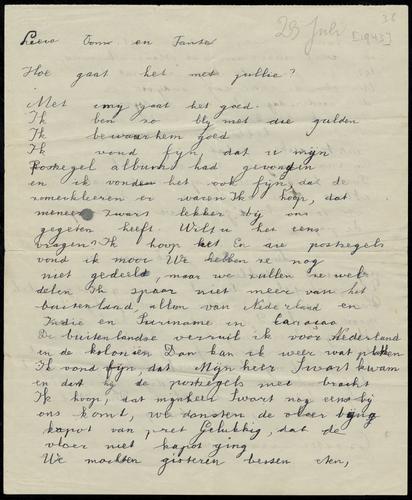 38
23 Juli
[1943]
Lieve Oome en Tante
Hoe gaat het met jullie?
Met my gaat het goed.
Ik ben zo bly met die gulden
Ik bewaar hem goed
Ik vond fyn, dat u myn
Postzegel album had gevonden
en ik vonden het ook fyn, dat de
zomerkleeren er waren Ik hoop, dat
meneer Swart lekker by ons
gegeten heeft. Wilt u het eens
vragen? Ik hoop het En die postzegels
vond ik mooi We hebben ze nog
niet gedeeld, maar we zullen ze wel
delen Ik spaar niet meer van het
buitenland, allen van Nederland en
Indie en Suriname en Curaçao
De buitenlandse verruil ik voor Nederland
en de koloniën Dan kan ik weer wat plakken
Ik vond fyn, dat Mynheer Swart kwam
en dat hy de postzegels mee bracht
Ik hoop, dat mynheer Swart nog eens by
ons komt, we dansten de vloer byna
kapot van pret Gelukkig, dat de
vloer niet kapot ging
We mochten gisteren bessen eten,